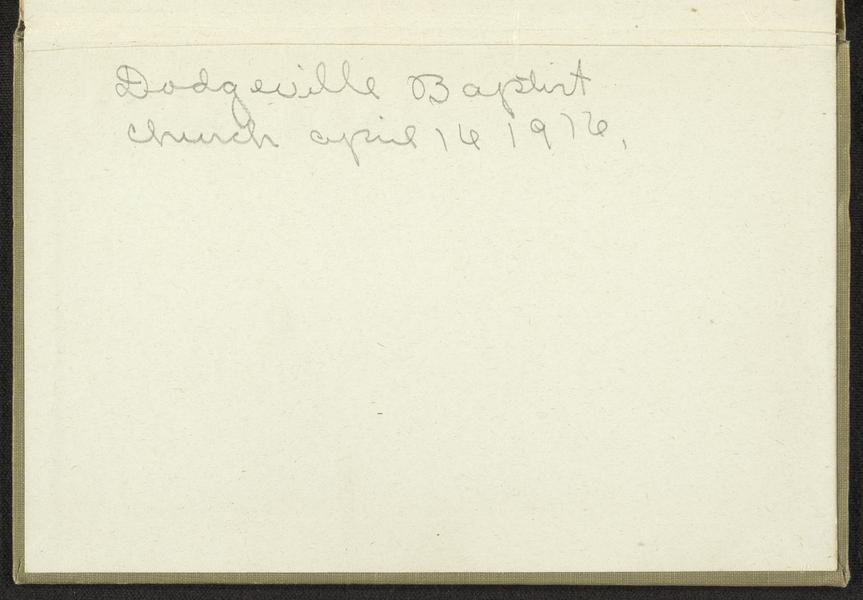 Dodgeville Baptist
church april 16 1916,